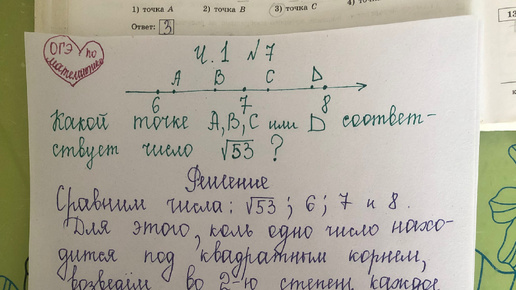 1) точка A 2) точка B 3) точка C 4) то
Ответ: 3
13
ОГЭ по математике
Ч.1 №7
A B C D
6 7 8
Какой точке A, B, C или D соответ-
ствует число √53 ?
Решение
Сравним числа: √53 ; 6 ; 7 и 8 .
Для этого, коль одно число нахо-
дится под квадратным корнем,
возведём во 2-ю степень каждое